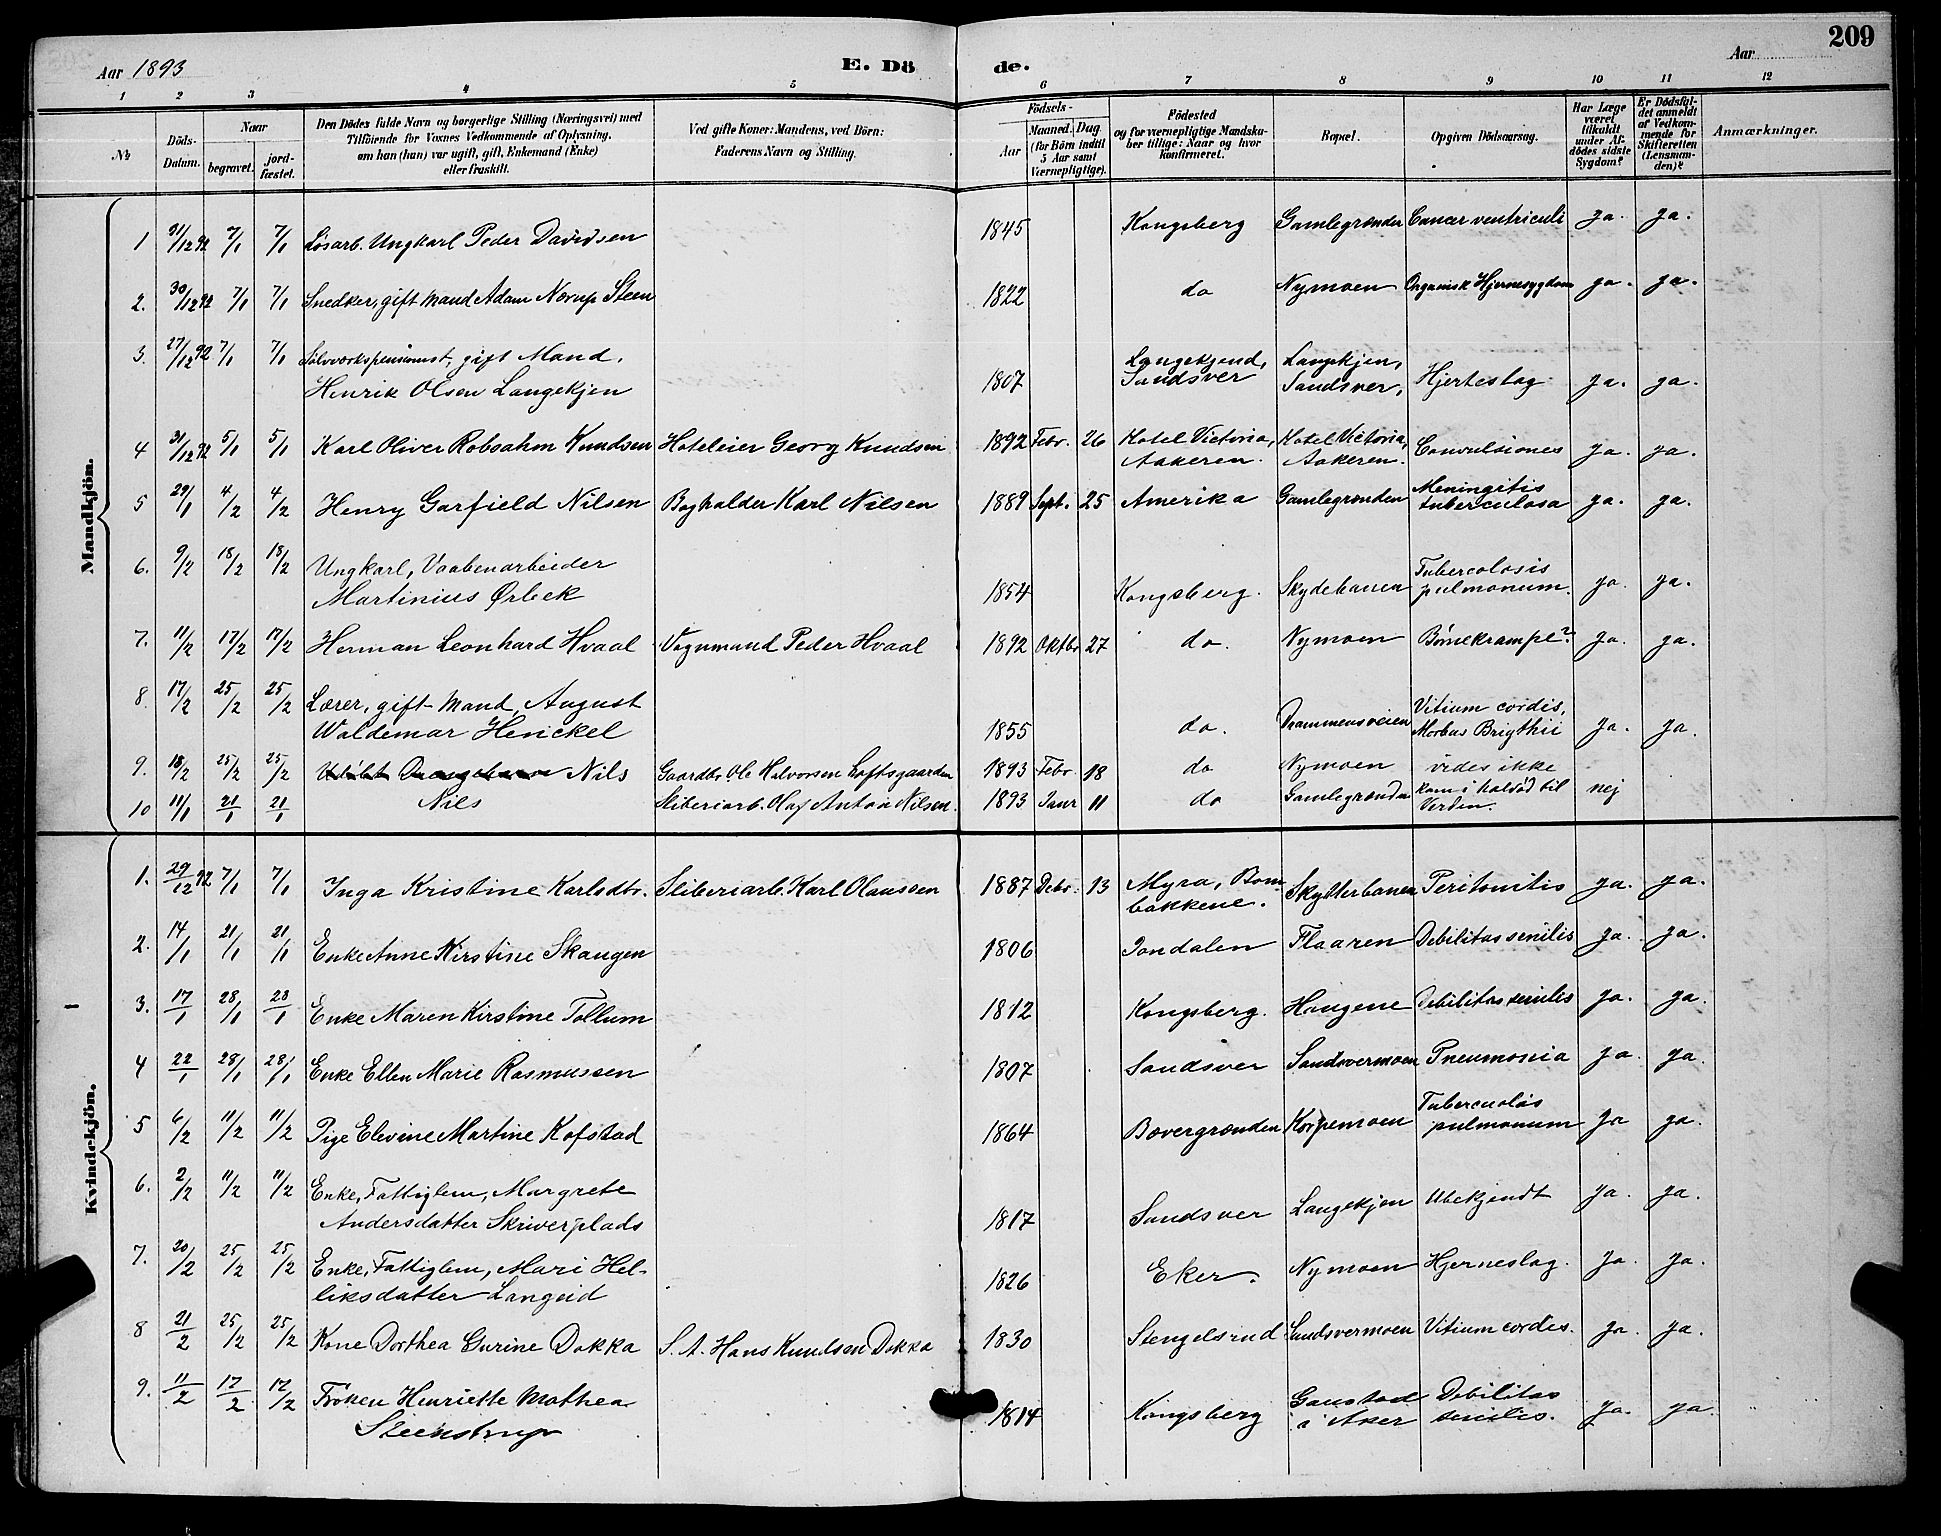 209
Aar 1893 E. Dö de. Aar
1 2 3 4 5 6 7 8 9 10 11 12
№ Döds-Datum. Naar begravet. jord-fæstet. Den Dödes fulde Navn og borgerlige Stilling (Næringsvei) med Tilföiende for Voxnes Vedkommende af Oplysning, om han (hun) var ugift, gift, Enkemand (Enke) eller fraskilt. Ved gifte Koner: Mandens, ved Börn: Faderens Navn og Stilling. Födsels- Aar Maaned. Dag (for Börn indtil 5 Aar samt Værnepligtige). Födested og for værnepligtige Mandskaber tillige: Naar og hvor konfirmeret. Bopæl. Opgiven Dödsaarsag. Har Læge været tilkaldt under Afdödes sidste Sygdom? Er Dödsfaldet anmeldt af Vedkommende for Skifteretten (Lensmanden)? Anmærkninger.
Mandkjön.
1 31/12 92 7/1 7/1 Løsarb. Ungkarl Peder Davidsen 1845 Kongsberg Gamlegrænden Cancer ventriculi ja. ja.
2. 30/12 92 7/1 7/1 Snedker, gift Mand Adam Nørup Steen 1822 do Nymoen Organisk Hjernesygdom ja. ja.
3. 27/12 92 7/1 7/1 Sølvverkspensionist, gift Mand, Langekjend, Langekjen,
Henrik Olsen Langekjen 1807 Sandsver Sandsver, Hjerteslag ja. ja.
4 31/12 92 5/1 5/1 Karl Oliver Robsahm Knudsen Hoteleier Georg Knudsen 1892 Febr. 26 Hotel Victoria, Hotel Victoria, Convulsiones ja. ja.
Aakeren. Aakeren.
5 29/1 4/2 4/2 Henry Garfield Nilsen Bogholder Karl Nilsen 1889 Sept. 25 Amerika Gamlegrænden Meningitis ja. ja.
tuberculosa
6. 9/2 18/2 18/2 Ungkarl, Vaabenarbeider Tubercolosis
Martinius Ørbek 1854 Kongsberg. Skydebanen pulmonum. ja. ja.
7. 11/2 17/2 17/2 Herman Leonhard Hvaal Vognmand Peder Hvaal 1892 Oktbr 27 do. Nymoen Børnekrampe? ja. ja.
8. 17/2 25/2 25/2 Lærer, gift Mand, August Vitium cordis,
Waldemar Henckel 1855 do. Drammensveien Morbus Brigthii ja. ja.
9. 18/2 25/2 25/2 Nils Gaardbr. Ole Halvorsen Loftsgaarden 1893 Febr. 18 do Nymoen vides ikke
10 11/1 21/1 21/1 Nils Sliberiarb. Olaf Anton Nilsen. 1893 Janr 11 do Gamlegrænden kom i haldød til nej
Verden.
Kvindekjön.
1. 29/12 92 7/1 7/1 Inga Kristine Karlsdtr. Sliberiarb. Karl Olaussen 1887 Debr. 13 Myra, Bom Skytterbanen Peritonitis ja. ja.
bakkene.
2. 14/1 21/1 21/1 Enke Anne Kirstine Skaugen 1806 Jondalen Flaaren Debilitas senilis ja. ja.
3. 17/1 28/1 28/1 Enke Maren Kirstine Tollum 1812 Kongsberg. Haugene Debilitas senilis ja. ja.
4 22/1 28/1 28/1 Enke Ellen Marie Rasmussen 1807 Sandsver Sandsvermoen Pneumonia ja ja.
5 6/2 11/2 11/2 Pige Elevine Martine Kofstad 1864 Bævergrænden Korpemoen Tuberculos ja ja.
pulmonum
6. 2/2 11/2 11/2 Enke, Fattiglem, Margrete Langekjen Ubekjendt ja. ja.
Andersdatter Skriverplads 1817 Sandsver
7. 20/2 25/2 25/2 Enke, Fattiglem, Mari Hel- Nymoen Hjerneslag. ja. ja.
liksdatter Langeid 1826 Eker.
8 21/2 25/2 25/2 Kone Dorthea Gurine Dokka S. A. Hans Knudsen Dokka 1830 Stengelsrud Sandsvermoen Vitium cordis. ja. ja.
9. 11/2 17/2 17/2 Frøken Henriette Mathea Gaustad Debilitas
Steenstrup 1814 Kongsberg i Aker senilis. ja. ja.